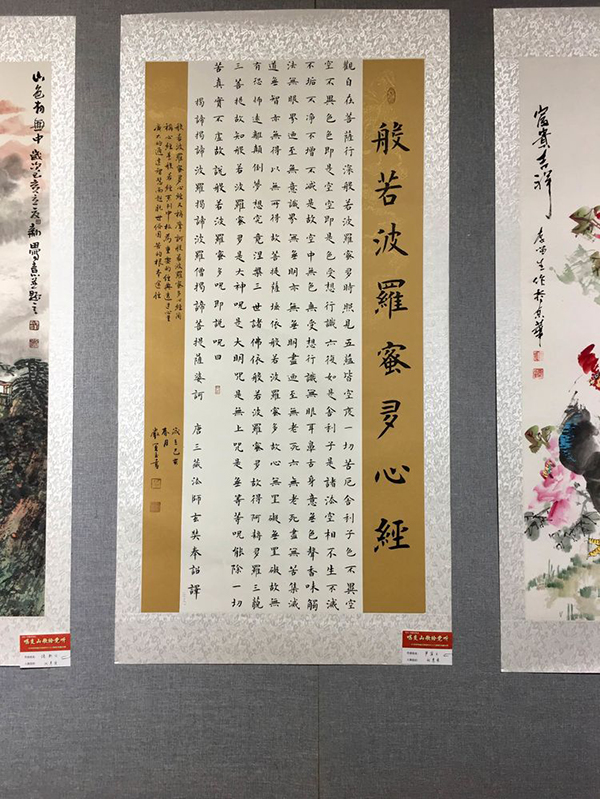 富貴吉祥
般若波羅蜜多心經
觀自在菩薩行深般若波羅蜜多時照見五蘊皆空度一切苦厄舍利子色不異空
空不異色色即是空空即是色受想行識亦復如是舍利子是諸法空相不生不滅
不垢不淨不增不減是故空中無色無受想行識無眼耳鼻舌身意無色聲香味觸
法無眼界乃至無意識界無無明亦無無明盡乃至無老死亦無老死盡無苦集滅
道無智亦無得以無所得故菩提薩埵依般若波羅蜜多故心無罣礙無罣礙故無
有恐怖遠離顛倒夢想究竟涅槃三世諸佛依般若波羅蜜多故得阿耨多羅三藐
三菩提故知般若波羅蜜多是大神咒是大明咒是無上咒是無等等咒能除一切
苦真實不虛故說般若波羅蜜多咒即說咒曰
揭諦揭諦波羅揭諦波羅僧揭諦菩提薩婆訶 唐三藏法師玄奘奉詔譯
般若波羅蜜多心經又稱摩訶般若波羅蜜多心經簡
稱心經是般若經系列中極為重要的經典
歲在己亥
春月
山色有無中 歲次己亥
唱支山歌给党听
唱支山歌给党听